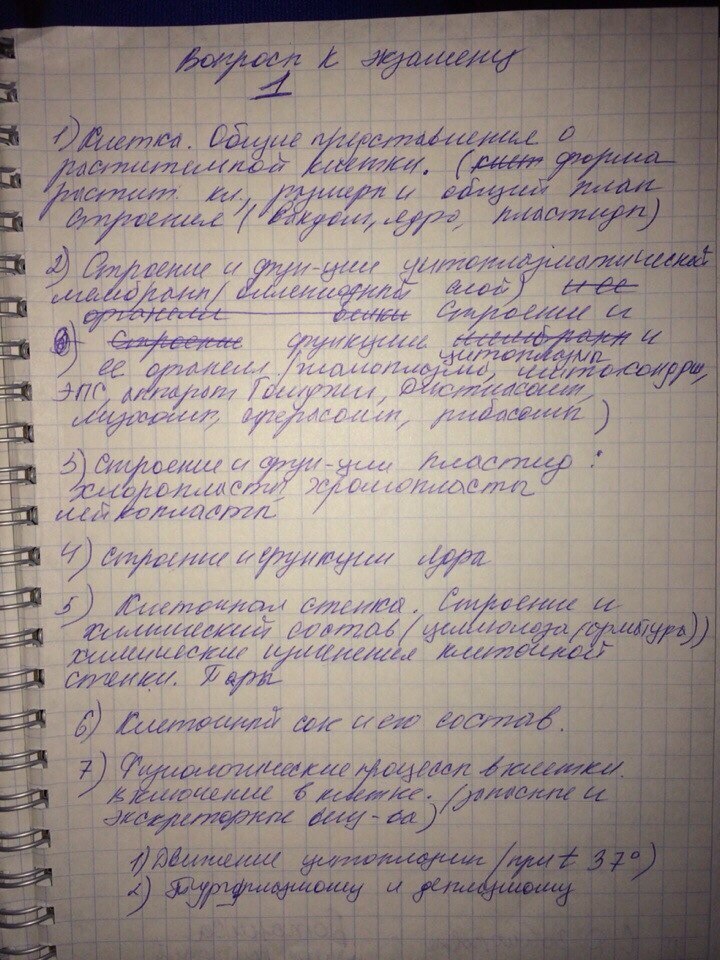 Вопросы к экзамену
1
1) Клетка. Общие представления о
растительной клетки. (форма
растит кл, размеры и общий план
строения (вакуоли, ядро, пластиды)
2) Строение и фун-ции цитоплазматической
мембраны (биллепидный слой) и ее
органели Строение и
Строение функции мембраны и
цитоплазмы
ее органели (гиалоплазма, митохондрии,
ЭПС, аппарат Гольджи, Диктиосомы,
лизосомы, сферасомы, рибасомы)
3) Строение и фун-ции пластид:
хлоропласты, хромопласты
лейкопласты
4) Строение и функции ядра
5) Клеточная стенка. Строение и
химический состав (целлюлоза (арматура))
химические изменения клеточной
стенки. Поры
6) Клеточный сок и его состав.
7) Физиологические процессы в клетки.
Включение в клетке. (запасные и
экскреторные вещ-ва)
1) Движение цитоплазмы (при t 37°)
2) и деплазмолиз